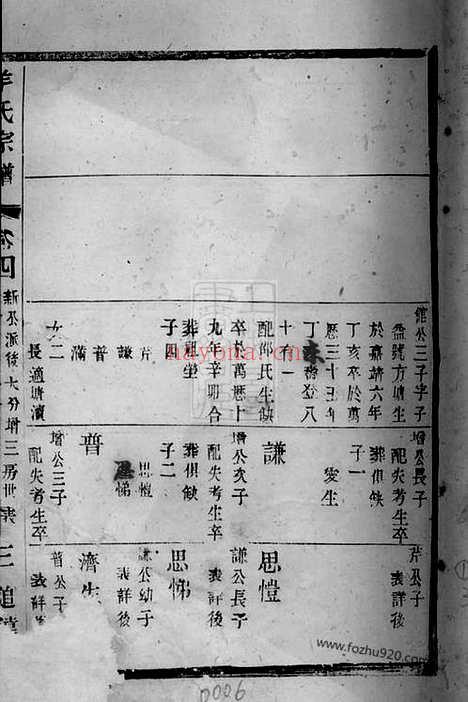 錧公三子字子
益號方塘生
於嘉靖六年
丁亥卒於萬
歷三十五年
丁未
十有一
配邵氏生缺
卒於萬歷十
九年辛卯合
葬祖塋
子四
芹
謙
普
滿
女二
長適塘濱
增公長子
配失考生卒
葬俱缺
子一
愛生
謙
增公次子
配失考生卒
葬俱缺
子二
思愷
思悌
普
增公三子
配失考生卒
芹公子
表詳後
思愷
謙公長子
表詳後
思悌
謙公幼子
表詳後
濟生
普公子
表詳後
羊氏宗譜
卷四
新公派後大分增三房世表
三
www.fozhu920.com
nayona.cn
0006